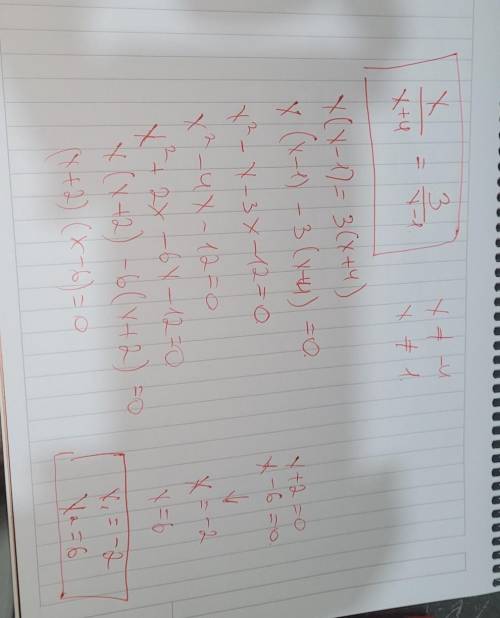 x/(x+4) = 3/(x-1)
x ≠ -4
x ≠ 1
x(x-1) = 3(x+4)
x(x-1) - 3(x+4) = 0
x² - x - 3x - 12 = 0
x² - 4x - 12 = 0
x² + 2x - 6x - 12 = 0
x(x+2) - 6(x+2) = 0
(x+2)(x-6) = 0
x+2=0
x-6=0
↓
x = -2
x = 6
x₁ = -2
x₂ = 6